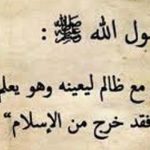 ول الله ﷺ :
مع ظالم ليعينه وهو يعلم
فقد خرج من الإسلام“